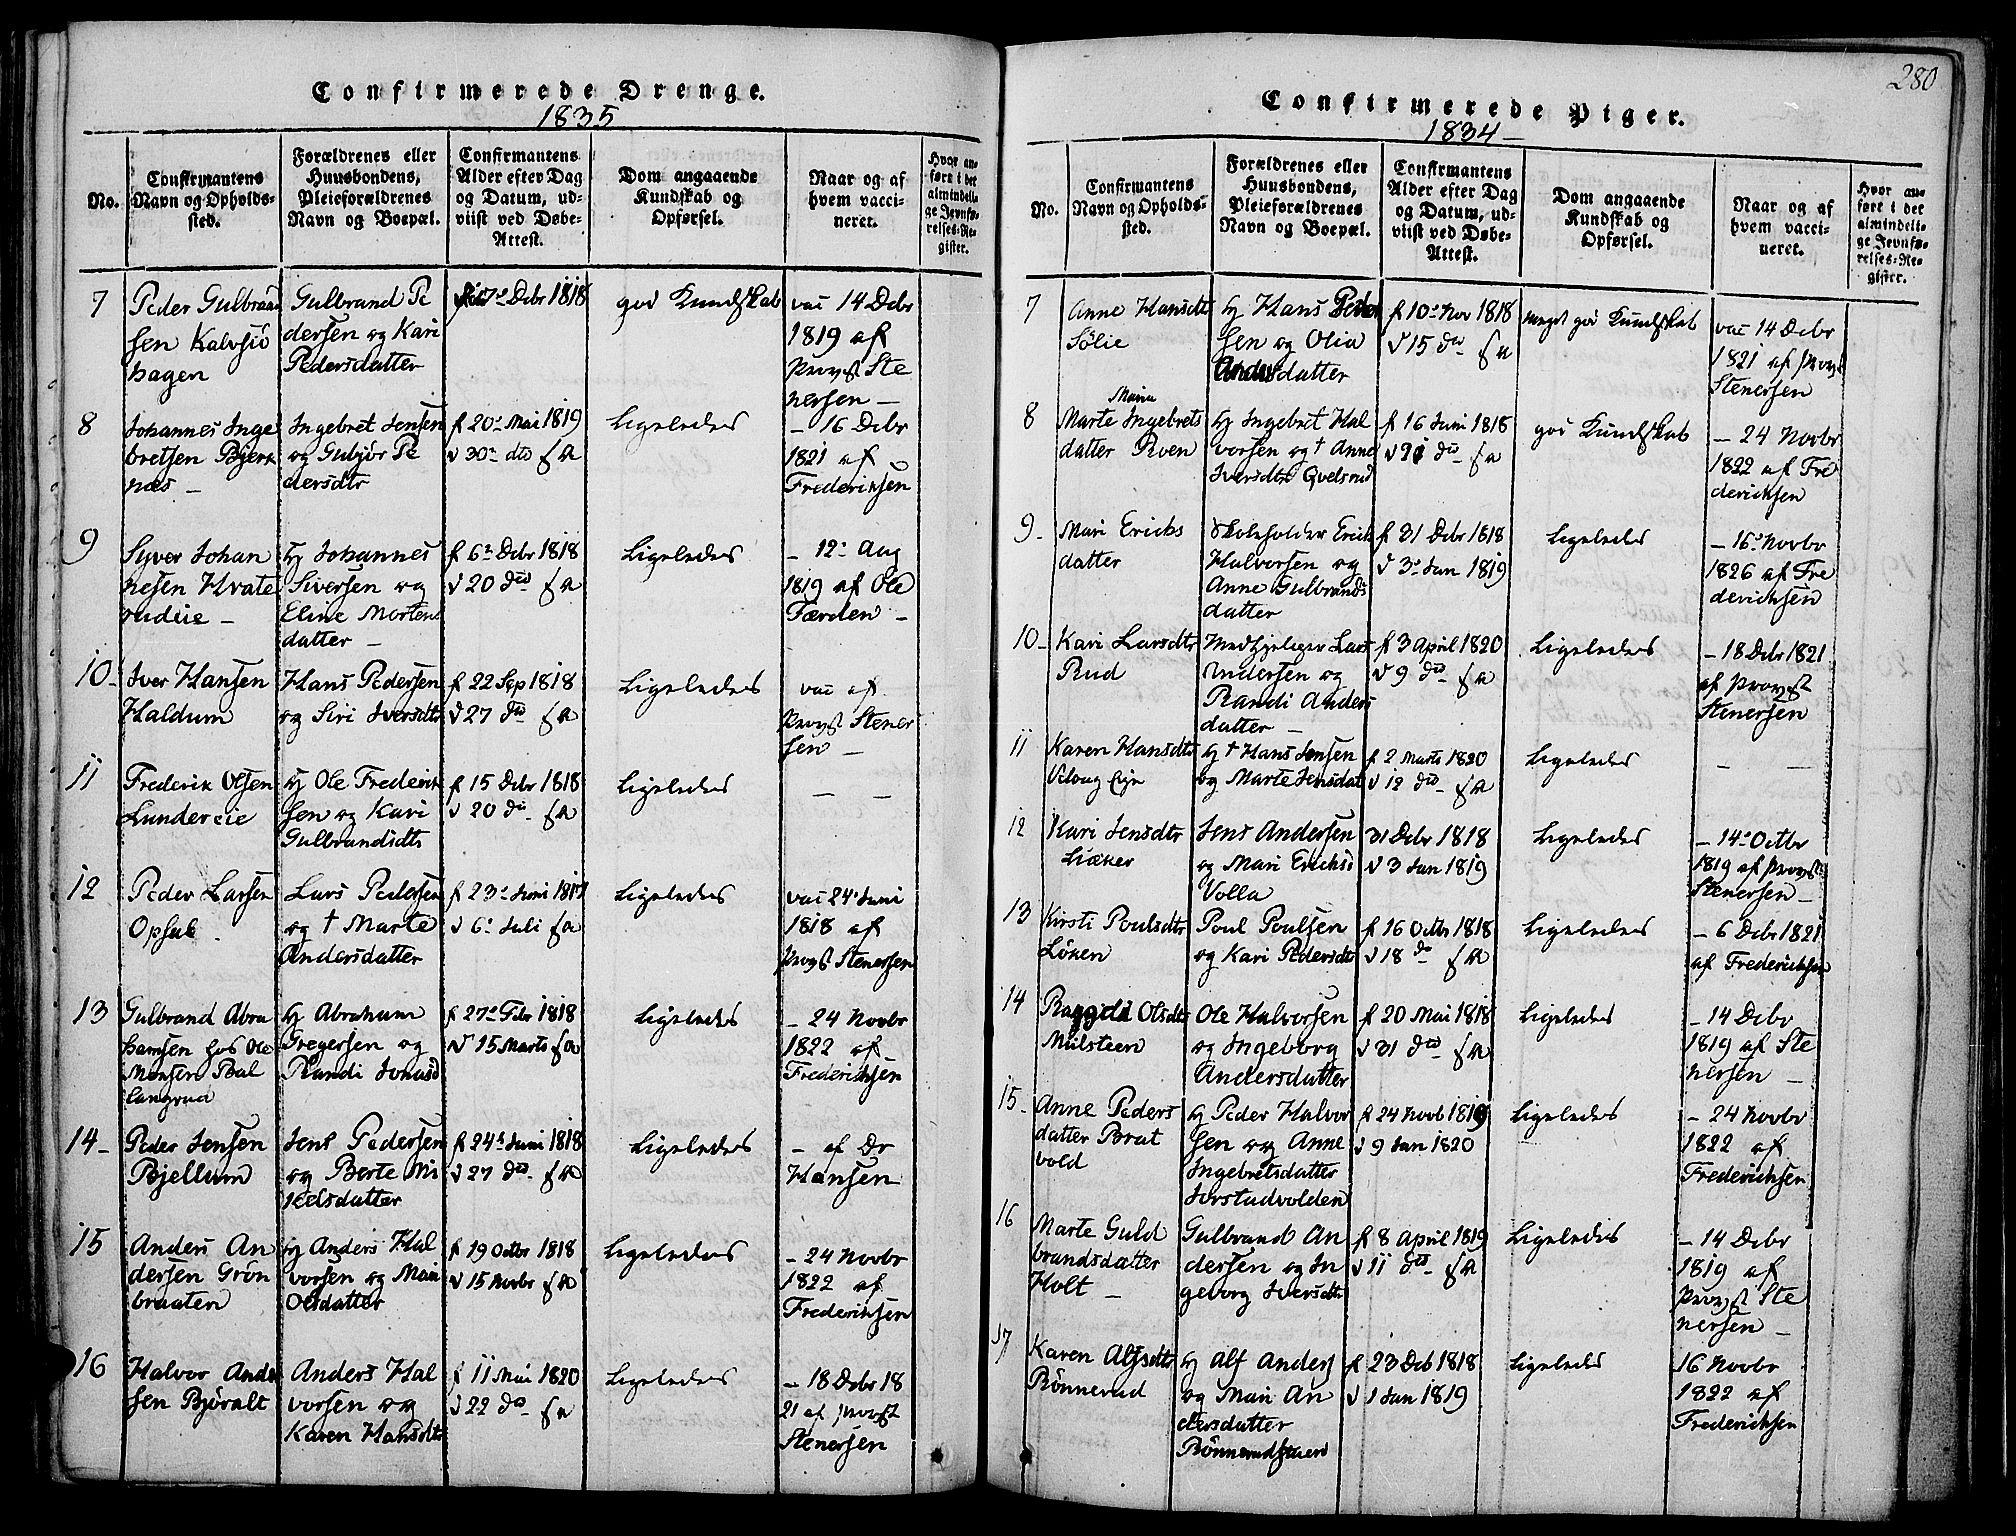 Confirmerede Drenge.
1835
No.
Confirmantens
Navn og Opholds-
sted.
Forældrenes eller
Huusbondens,
Pleieforældrenes
Navn og Boepæl.
Confirmantens
Alder efter Dag
og Datum, ud-
viist ved Døbe-
Attest.
Dom angaaende
Kundskab og
Opførsel.
Naar og af
hvem vacci-
neret.
Hvor an-
ført i det
almindeli-
ge Jevnfø-
relses-Re-
gister.
7
Peder Gulbrand
sen Kalvsiö
hagen
Gulbrand Pe
dersen og Kari
Pedersdatter
7de Debr 1818
god Kundskab
vac 14 Debr
1819 af
Provst Ste
nersen –
8
Johannes Inge
bretsen Bjerk
næs –
Ingebret Jensen
og Gubjör Pe
dersdtr
f 20de Mai 1819
d 30de dto f a
Ligeledes
– 16 Debr
1821 af
Frederiksen
9
Syver Johan
nesen Hvate
rudeie –
Hj Johannes
Siversen og
Eline Mortens
datter –
f 6te Debr 1818
d 20 do f a
Ligeledes
– 12te Aug
1819 af Ole
Færden –
10–
Iver Hansen
Haldum
Hans Pedersen
og Siri Iversdtr
f 22 Sep 1818
d 27 do f a
Ligeledes
vac af
Provst Stener
sen –
11
Frederik Olsen
Lundereie
Hj Ole Frederik
sen og Kari
Gulbrandsdtr
f 15 Debr 1818
d 20 do f a
Ligeledes
– –
12
Peder Larsen
Opsal
Lars Pedersen
og † Marte
Andersdatter
f 23de Juni 1817
d 6te Juli f a
Ligeledes
vac 24de Juni
1818 af
Provst Stenersen
13
Gulbrand Abra
hamsen hos Ole
Monsen Bal
langrud
Hj Abraham
Gregersen og
Randi Johnsd
f 27de Febr 1818
d 15 Marts f a
Ligeledes
– 24 Novbr
1822 af
Frederichsen
14–
Peder Jensen
Bjellum
Jens Pedersen
og Berte Mi
kelsdatter
f 24de Juni 1818
d 27 do f a
Ligeledes
– af Dr
Hansen
15
Anders An
dersen Grön
braaten
Hj Anders Hal
vorsen og Mari
Olsdatter
f 19 Octbr 1818
d 15 Novbr f a
Ligeledes
– 24 Novbr
1822 af
Frederiksen
16
Halvor Ander
sen Björalt
Anders Hal
vorsen og
Karen Hansdtr
f 11 Mai 1820
d 22 do f a
Ligeledes
– 18 Debr 18
21 af Provst
Stenersen
280
Confirmerede Piger.
1834–
No.
Confirmantens
Navn og Opholds-
sted.
Forældrenes eller
Huusbondens,
Pleieforældrenes
Navn og Boepæl.
Confirmantens
Alder efter Dag
og Datum, ud-
viist ved Døbe-
Attest.
Dom angaaende
Kundskab og
Opførsel.
Naar og af
hvem vacci-
neret.
Hvor an-
ført i det
almindeli-
ge Jevnfø-
relses-Re-
gister.
7
Anne Hansdtr
Sölie
Hj Hans Peder
sen og Olia
Andersdatter
f 10de Nov 1818
d 15 do f a
meget god Kundskab
vac 14 Debr
1821 af Provst
Stenersen
8
Maria
Marte Ingebrets
datter Roen
Hj Ingebret Hal
vorsen og † Anne
Iversdtr Qvelsrud
f 16 Juni 1818
d 21 do f a
god Kundskab
– 24 Novbr
1822 af Fre
derichsen
9–
Mari Erichs
datter
Skoleholder Erich
Halvorsen og
Anne Gulbrands
datter
f 31 Debr 1818
d 3de Jan 1819
Ligeledes
– 16de Novbr
1826 af Fre
derichsen
10–
Kari Larsdtr
Rud
Medhjelper Lars
Andersen og
Randi Anders
datter –
f 3 April 1820
d 9 do f a
Ligeledes
– 18 Debr 1821
af Provst
Stenersen
11
Karen Hansdtr
Viloug Eje
Hj † Hans Jensen
og Marte Jensdat
f 2 Marts 1820
d 12 do f a
Ligeledes
– –
12
Kari Jensdtr
Liaker
Jens Andersen
og Mari Ericksd
Volla
31 Debr 1818
d 3 Jan 1819
Ligeledes
– 14de Octbr
1819 af Provst
Stenersen –
13
Kirsti Poulsdtr
Löken
Poul Poulsen
og Kari Pedersdtr
f 16 Octbr 1818
d 18 do f a
Ligeledes
– 6 Debr 1821
af Frederichsen
14
Raggild Olsdtr
Mülsteen
Ole Halvorsen
og Ingeborg
Andersdatter
f 20 Mai 1818
d 31 do f a
Ligeledes
– 14 Debr
1819 af Ste
nersen –
15–
Anne Peders
datter Brat
vold
Hj Peder Halvor
sen og Anne
Ingebretsdatter
Jorstadvolden
f 24 Novb 1819
d 9 Jan 1820
Ligeledes
– 24 Novbr
1822 af
Frederichsen
16
Marte Guld
brandsdatter
Holt –
Gulbrand An
dersen og In
geborg Iversdtr
f 8 April 1819
d 11 do f a
Ligeledes
– 14 Debr
1819 af
Provst Ste
nersen –
17
Karen Alfsdtr
Rönnerud
Hj Alf Anders
og Mari An
dersdatter
Rönnerudstuen
f 23 Deb 1818
d 1 Jan 1819
Ligeledes
16 Novbr
1822 af
Frederichsen